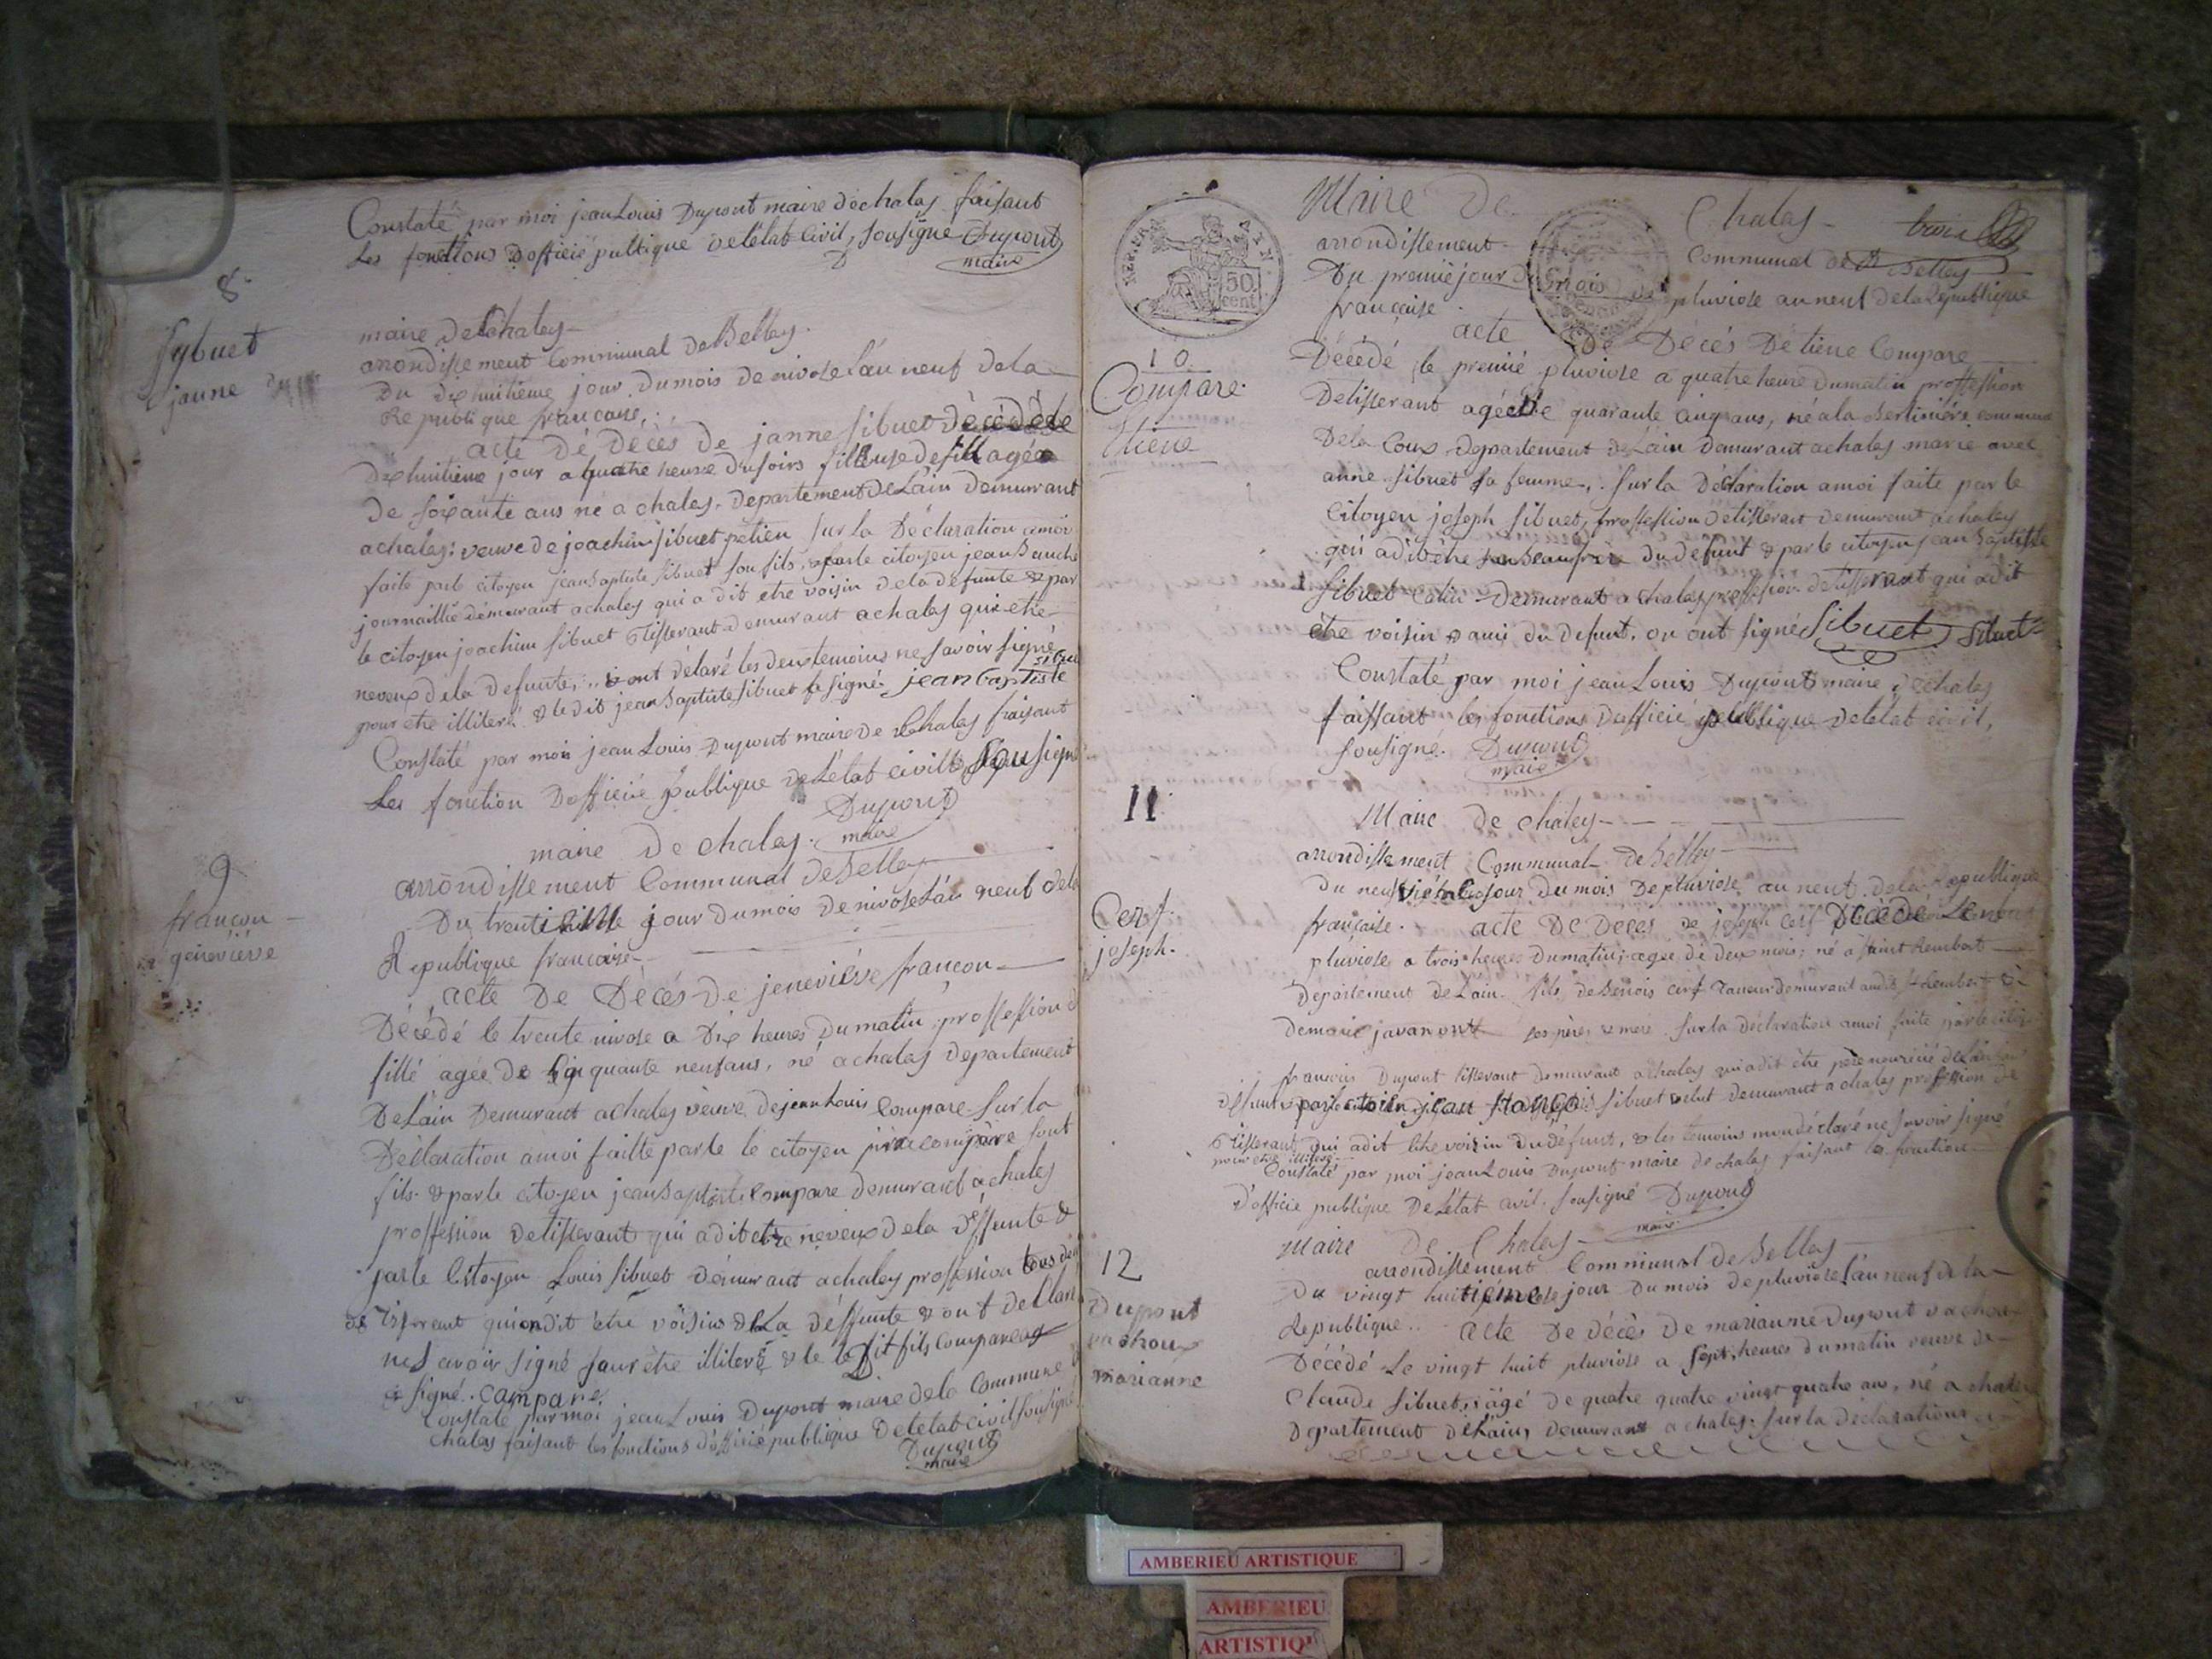 Constaté par moi jean Louis Dupont maire dechaley faisant
Les fonctions d'officié publique de l'état Civil, sousigné Dupont
maire
8.
Sybuet
janne
maire de Chaley
arrondissement Communal de Belley.
Du dixhuitième jour du mois de nivose l'an neuf de la
Republique francaise.
acte de Décès de janne Sibuet décédé le
dixhuitieme jour a quatre heure du soirs fileuse de fill agée
de soixante ans né a chaley, departement de Lain demurant
a chaley. veuve de joachim Sibuet petien Sur la Déclaration amoi
faite parle citoyen jean Baptiste Sibuet son fils, parle citoyen jean
journaillié demurant a chaley qui a dit etre voisin de la defunte & par
le citoyen joachim Sibuet Tisserant demurant a chaley qui etre
neveux de la defunte, & ont délaré les deux temoins ne savoir signé
pour etre illiteré & le dit jean Baptiste Sibuet a signé. jean Baptiste
Sibuet
Constaté par moi jean Louis Dupont maire de Chaley faisant
Les fonction D'officié publique de l'etat civille Sousigné
Dupont
maire
9
francon
genevieve
maire de chaley.
arrondissement Communal de Belley
Du trentième jour du mois de nivose l'an neuf dela
Republique francaise
acte De Décés de jeneviéve françon
Décédé le trente nivose a Dix heures du matin, proffession d
fille agée de Cinquante neuf ans, né a chaley departement
De Lain Demurant a chaley veuve de jean Louis Compare Sur la
Déclaration amoi faitte parle le citoyen compare sont
fils. & parle citoyen jean Baptiste Compare demurant a chaley
proffession detisserant qui a dit etre neveux de la deffunte &
parle Citoyen Louis Sibuet demurant a chaley proffession tous deux
de Tisserant qui on dit etre voisins de La deffunte & ont declaré
ne savoir signé pour être illiteré & le le dit fils compare
a signé. compare
Constaté par moi jean Louis Dupont maire de la Commune
chaley faisant les fonctions d'officié publique de letat civil sousigné
Dupont
maire
REP. FRA.
50
cent.
Maire De Chaley
trois
arrondissement Communal de Belley
Du premié jour du mois de pluviose an neuf de la Republique
française.
acte De Décés De tiene Compare
10
Compare
Etiene
Décédé le premié pluviose a quatre heure du matin proffession
De tisserant agée De quarante cinq ans, né a la Bertiniére commune
De la Coux departement de Lain Demurant a chaley marié avec
anne Sibuet sa femme, Sur la Déclaration amoi faite par le
Citoyen joseph Sibuet, proffession detisserant demurant a chaley
qui a dit être son beaufrere du défunt & par le citoyen jean Baptiste
Sibuet Colin Demurant a chaley proffession de tisserant qui a dit
être voisin & ami du defunt, on ont signé Sibuet Sibuet
Constaté par moi jean Louis Dupont maire de chaley
faissant les fonctions D'officié publique de létat civil,
Sousigné. Dupont
maire
11
Cerf
joseph.
Maire de chaley
arrondissement Communal de Belley
Du neuvième jour du mois De pluviose an neuf dela republique
française. acte De Déces de joseph cerf Décédé Le neuf
pluviose a trois heures du matin, agée de deux mois, né a Saint Rembert
Departement de Lain fils de Benois cerf Taneur demurant audit St Rembert &
de marie javanont ses pères & mere. Sur la déclaration amoi faite parle
francois Dupont tisserant demurant a chaley qui a dit être père nouricié de
deffunt & par le citoien jean françois Sibuet demurant a chaley proffession de
Tisserant qui a dit être voisin du defunt, & les temoins mon déclaré ne savoir signé
pour etre illiteré
Constaté par moi jean Louis Dupont maire de chaley faisant les fonction
d'officié publique De Létat civil, Sousigné Dupont
maire
12
Dupont
vachoux
marianne
Maire De Chaley
arrondissement Communal de Belley
Du vingt huitieme jour Du mois de pluviose l'an neuf de la
Republique. acte De décès de marianne Dupont vachoux
Décédé Le vingt huit pluviose a Sept heures du matin veuve de
Claude Sibuet, agé de quatre quatre vingt quatre ans, né a chaley
Departement de Lain, demurant a chaley. Sur la déclaration a
AMBERIEU ARTISTIQUE
AMBERIEU
ARTISTIQ